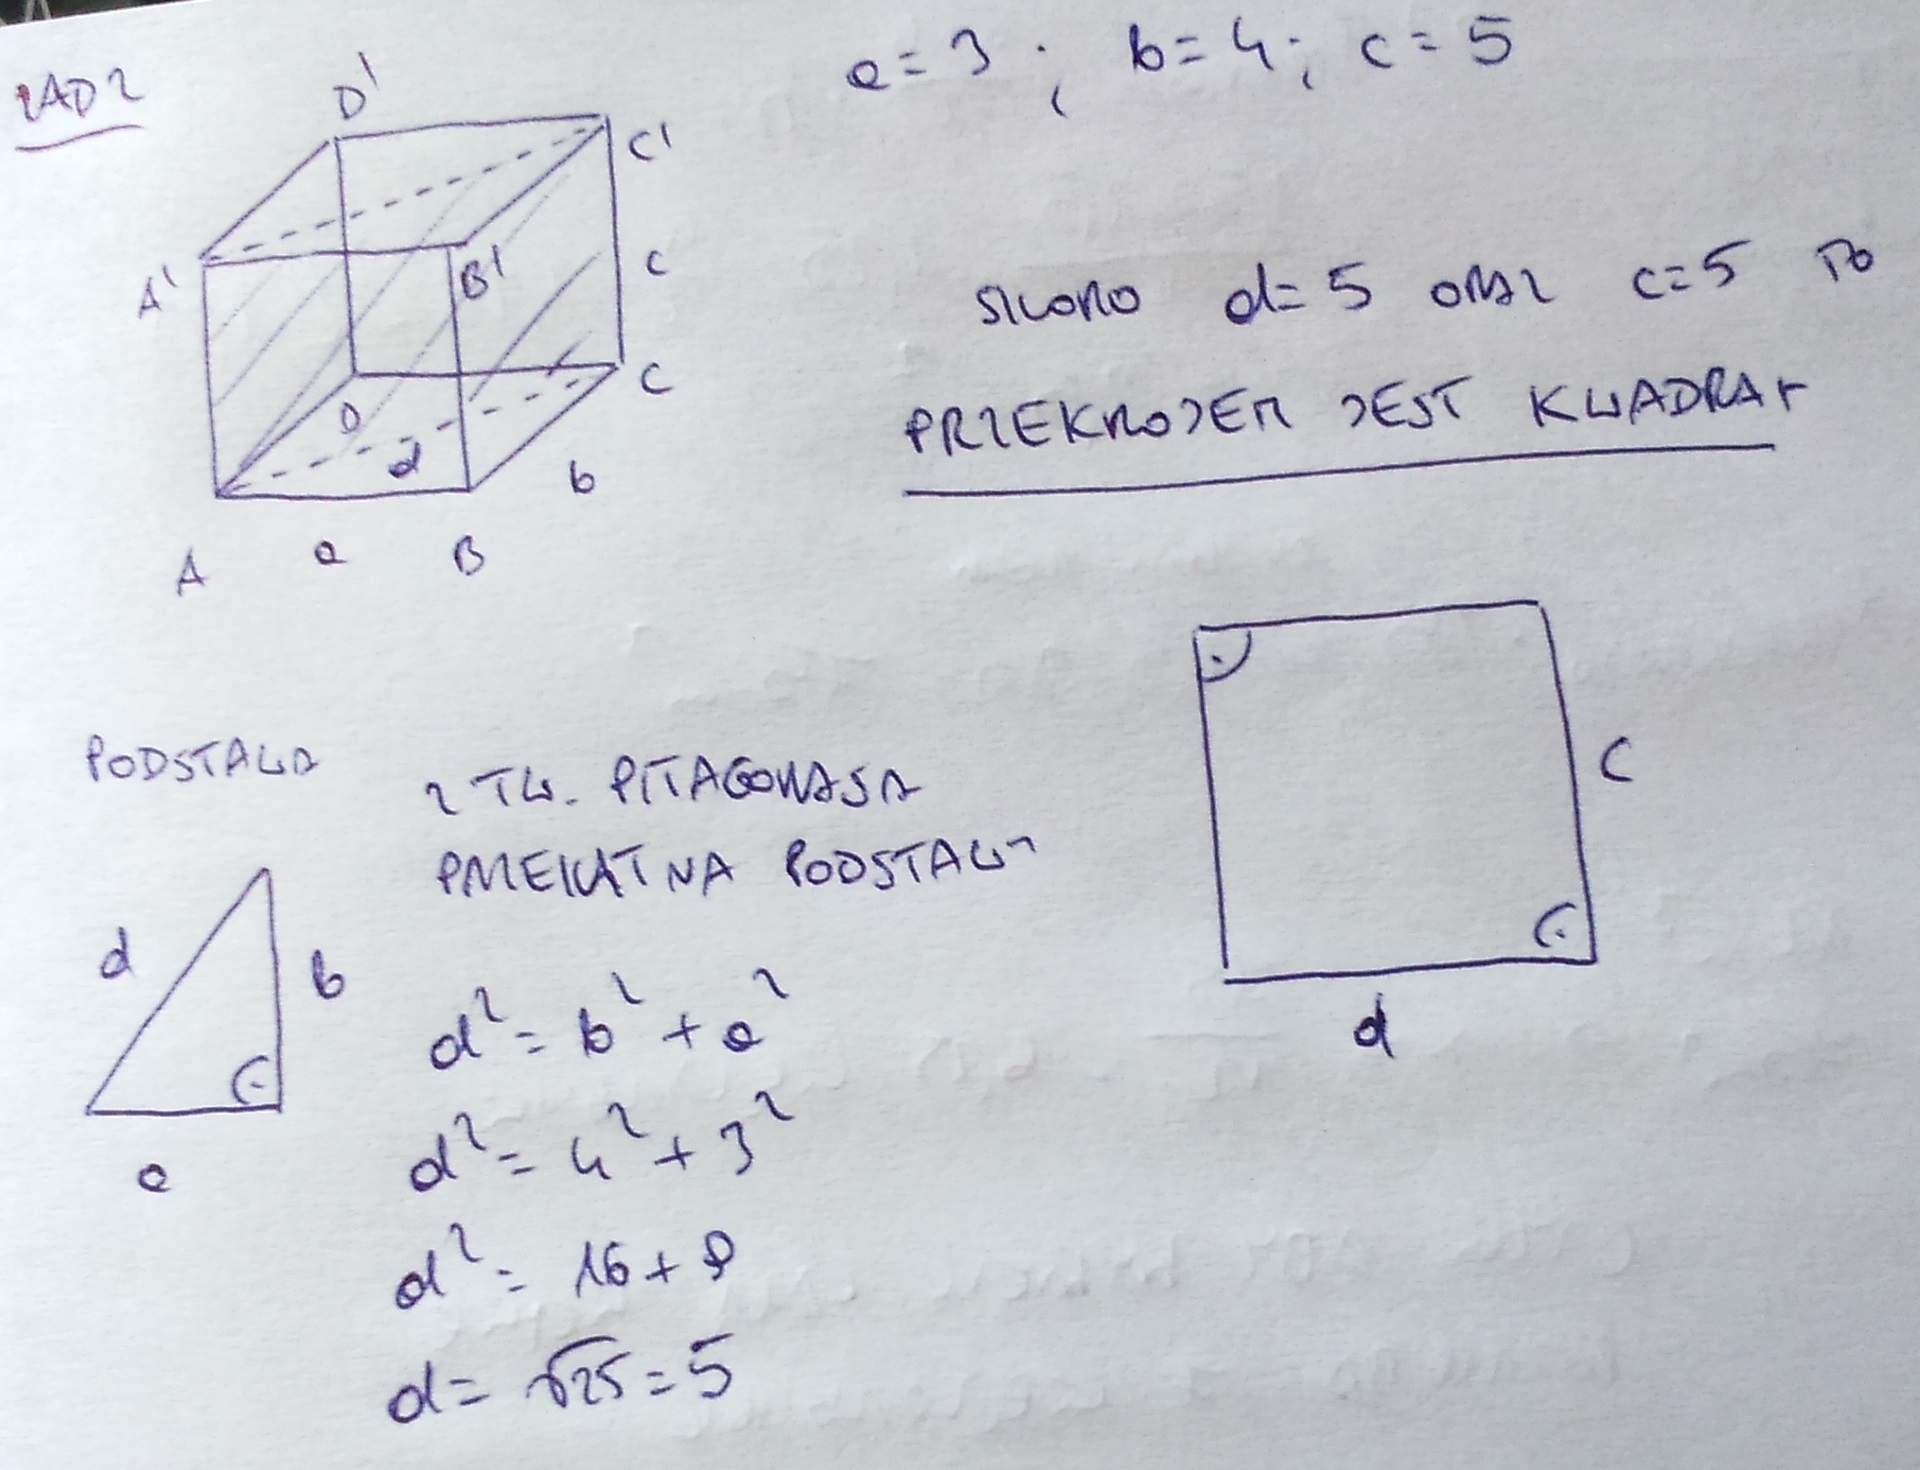 ZAD 2
a = 3 ; b = 4 ; c = 5
D'
C'
A'
B'
c
D
C
d
b
A a B
SKORO d = 5 ORAZ c = 5 TO
PRZEKROJEM JEST KWADRAT
PODSTAWA
Z TW. PITAGORASA
PRZEKĄTNA PODSTAWY
d
b
a
d² = b² + a²
d² = 4² + 3²
d² = 16 + 9
d = √25 = 5
c
d